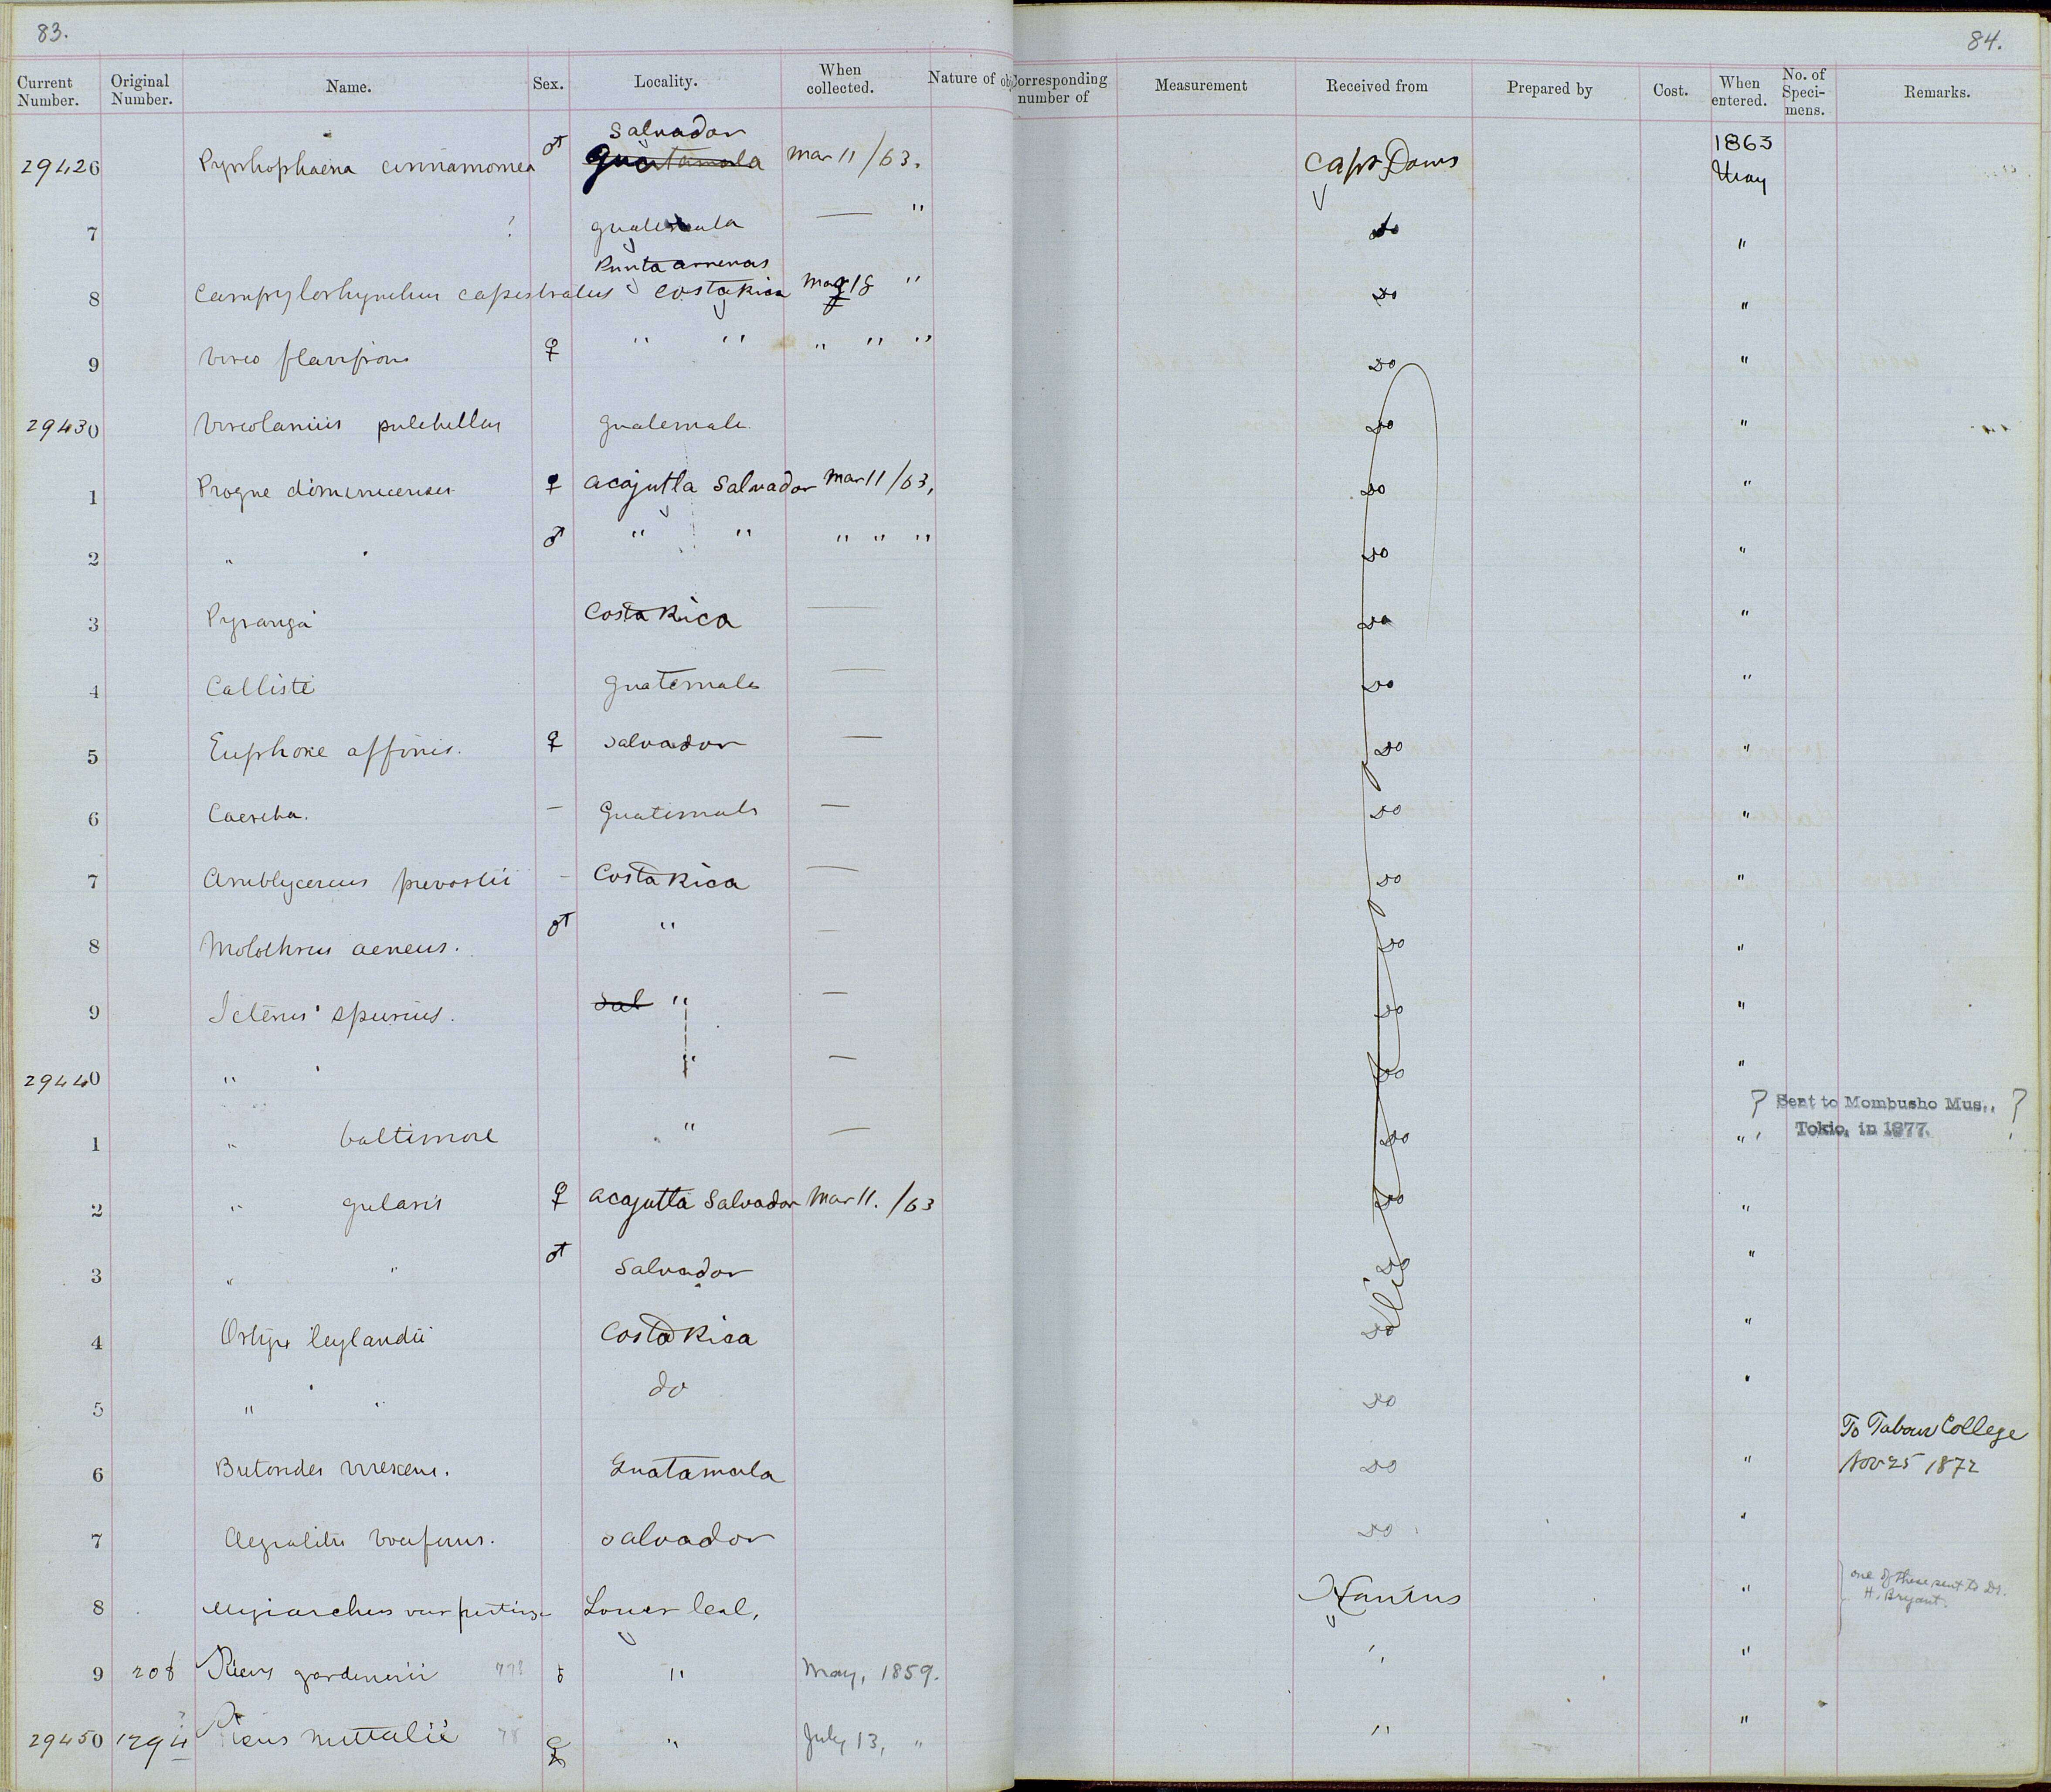 83.
84.
Current Number. Original Number. Name. Sex. Locality. When collected. Nature of ob Corresponding number of Measurement Received from Prepared by Cost. When entered. No. of Speci-mens. Remarks.
Salvador 1863
29426 Pyrrhophaena cinnamomea ♂ Guatamala Mar 11 /63. Capt. Dows May
7 ? Guatemala — " do "
Punta arrenas
8 Campylorhynchus capistratus Costa Rica Mar 18 " do "
9 Vireo flavifrons ♀ " " " " " do "
29430 Vireolanius pulchellus Guatemala. do "
1 Progne dominicensis ♀ Acajutla Salvador Mar 11 /63, do "
2 " " ♂ " " " " " do "
3 Pyranga Costa Rica — do "
4 Calliste Guatemala — do "
5 Euphone affinis. ♀ Salvador — do "
6 Caereba. — Guatemala — do "
7 Amblycercus prevostii - Costa Rica — do "
8 Molothrus aeneus. ♂ " — do "
9 Icterus spurius. Sal " — do "
29440 " " " — do "
1 " baltimore " — do " ? Sent to Mombusho Mus., ?
Tokio, in 1877.
2 " gularis ♀ Acajutta Salvador Mar 11. /63 do "
3 " " ♂ Salvador do "
4 leylandii Costa Rica do "
5 " " do do "
To Tabour College
6 Butorides virescens. Guatamala do " Nov 25 1872
7 Aegialitis vociferus. Salvador do "
8 Myiarchus var Lower Cal. Xantus " one of these sent to Dr.
H. Bryant.
9 208 Picus gardinerii ♂ " May, 1859. " "
29450 Picus nuttalii " July 13, " " "